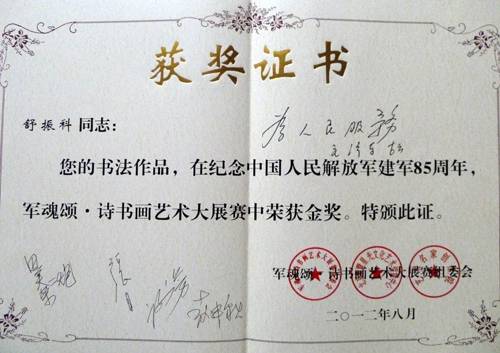 获奖证书
舒振科 同志：
为人民服务
毛泽东
您的书法作品，在纪念中国人民解放军建军85周年，
军魂颂·诗书画艺术大展赛中荣获金奖。特颁此证。
军魂颂·诗书画艺术大展赛组委会
二〇一二年八月